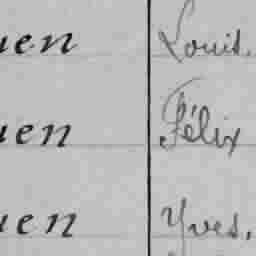 uen Louis.
uen Félix
uen Yves,